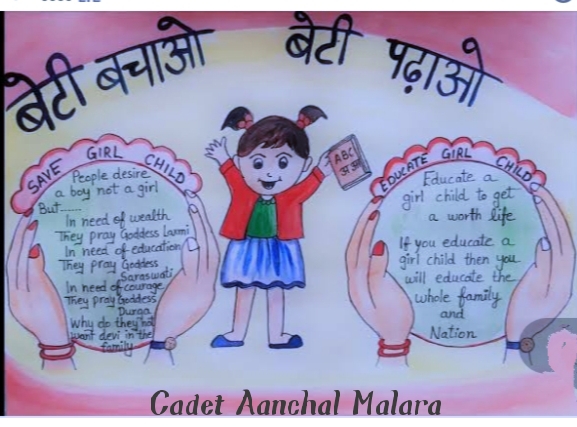 बेटी बचाओ
बेटी पढ़ाओ
SAVE GIRL CHILD
People desire
a boy not a girl
But......
In need of wealth
They pray Goddess Laxmi
In need of education
They pray Goddess
Saraswati
In need of courage
They pray Goddess
Durga
Why do they not
want devi in the
family
ABC
अ आ
EDUCATE GIRL CHILD
Educate a
girl child to get
a worth life
If you educate a
girl child then you
will educate the
whole family
and
Nation
Cadet Aanchal Malara